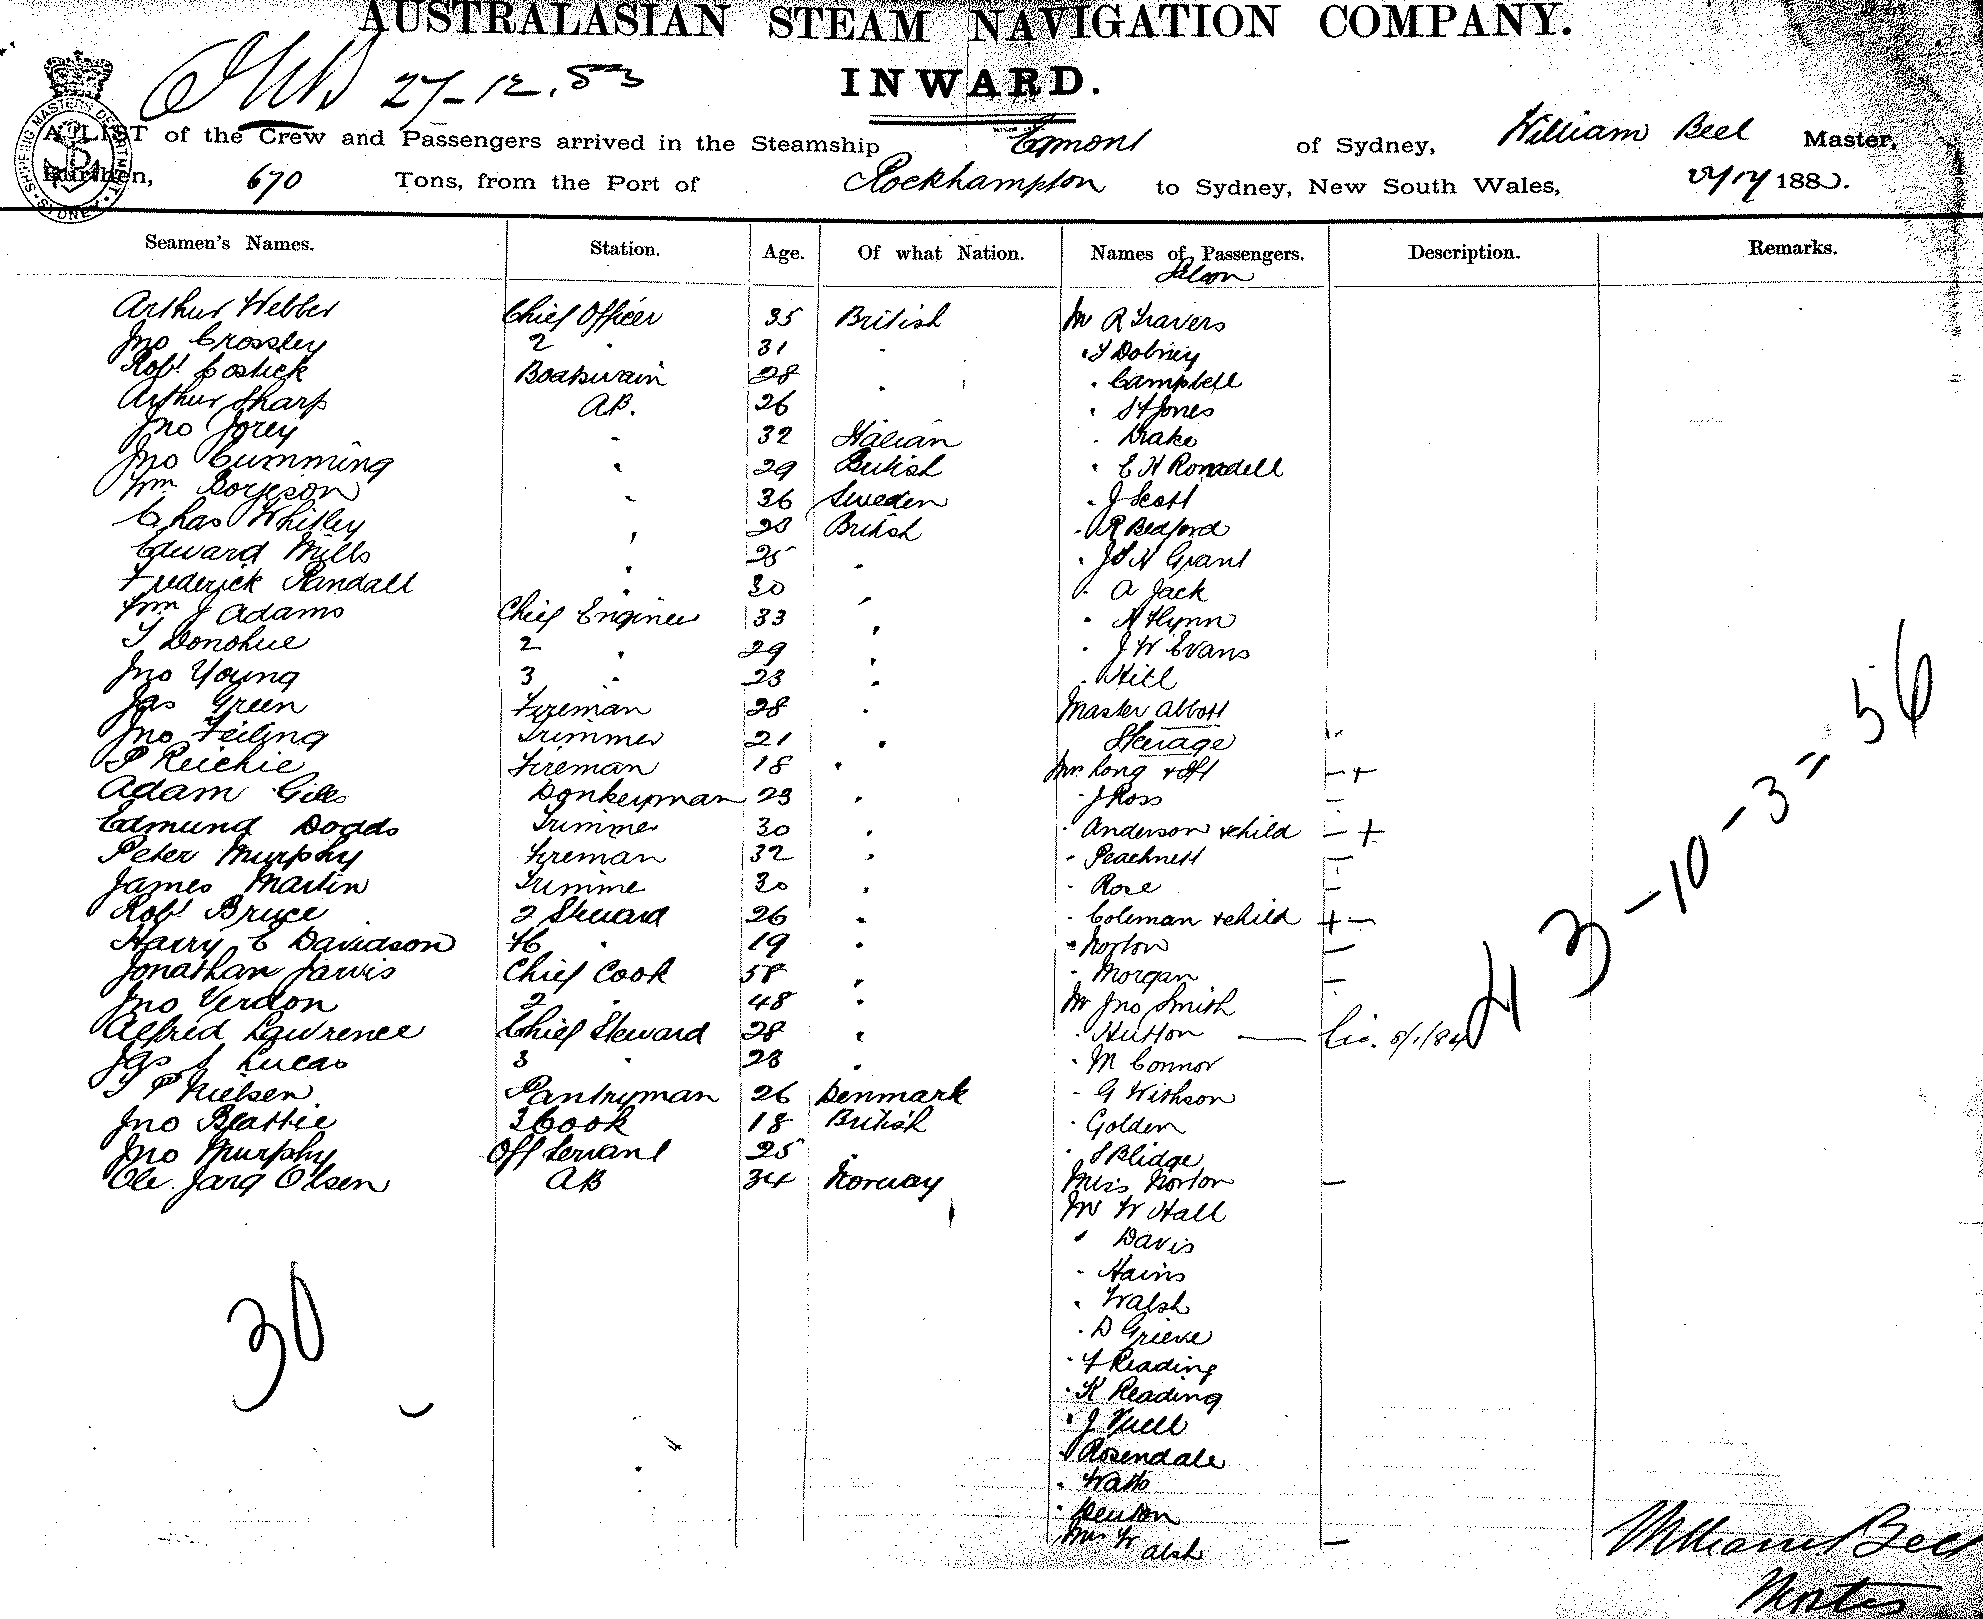 AUSTRALASIAN STEAM NAVIGATION COMPANY.
27-12.83
INWARD.
A LIST of the Crew and Passengers arrived in the Steamship Egmont of Sydney, William Beel Master,
Burthen, 670 Tons, from the Port of Rockhampton to Sydney, New South Wales, 188
SHIPPING MASTER'S DEPARTMENT SYDNEY
Seamen's Names. Station. Age. Of what Nation. Names of Passengers. Description. Remarks.
Saloon
Arthur Webber Chief Officer 35 British Mr R Travers
Jno Crossley 2 " 31 " " Dobney
Robt Costick Boatswain 28 " " Campbell
Arthur Sharp AB. 26 " Jones
Jno Jorey " 32 Italian " Drake
Jno Cumming " 29 British " C H Ronsdell
Wm Borjeson " 36 Sweden " J Scott
Chas Whitley 23 British " R Bedford
Edward Mills " 25 " " Grant
Frederick Randall " 30 " " A Jack
Wm J Adams Chief Engineer 33 " " Flynn
T Donohue 2 " 29 " " J W Evans
Jno Young 3 " 23 " " Hill
Jas Green Fireman 28 " Master Abbott
Jno Feiling Trimmer 21 " Steerage
P Reichie Fireman 18 " Mrs Long - +
Adam Giles Donkeyman 23 " " J Ross -
Edmund Dodds Trimmer 30 " " Anderson & child - +
Peter Murphy Fireman 32 " " Peachnett -
James Martin Trimme 30 " " Rose -
Robt Bruce 2 Steward 26 " " Coleman & child + -
Harry E Davidson " 19 " " Norton -
Jonathan Jarvis Chief Cook 58 " " Morgan -
Jno Verdon 2 " 48 " Mr Jno Smith
Alfred Lawrence Chief Steward 28 " " Hutton — 8/1/84
Jas Lucas 3 " 23 " " M Connor
T P Nielsen Pantryman 26 Denmark " G Withson
Jno Beattie 3 Cook 18 British " Golden
Jno Murphy Off Servant 25 " " S Blidge
Ole Jarg Olsen AB 34 Norway Miss Norton -
Mr W Hall
" Davis
" Hains
" Walsh
" D Grieve
" F Reading
" K Reading
" J
" Rosendale
" Watts
"
Mrs Walsh -
43-10-3=56
30
William Beel
Master